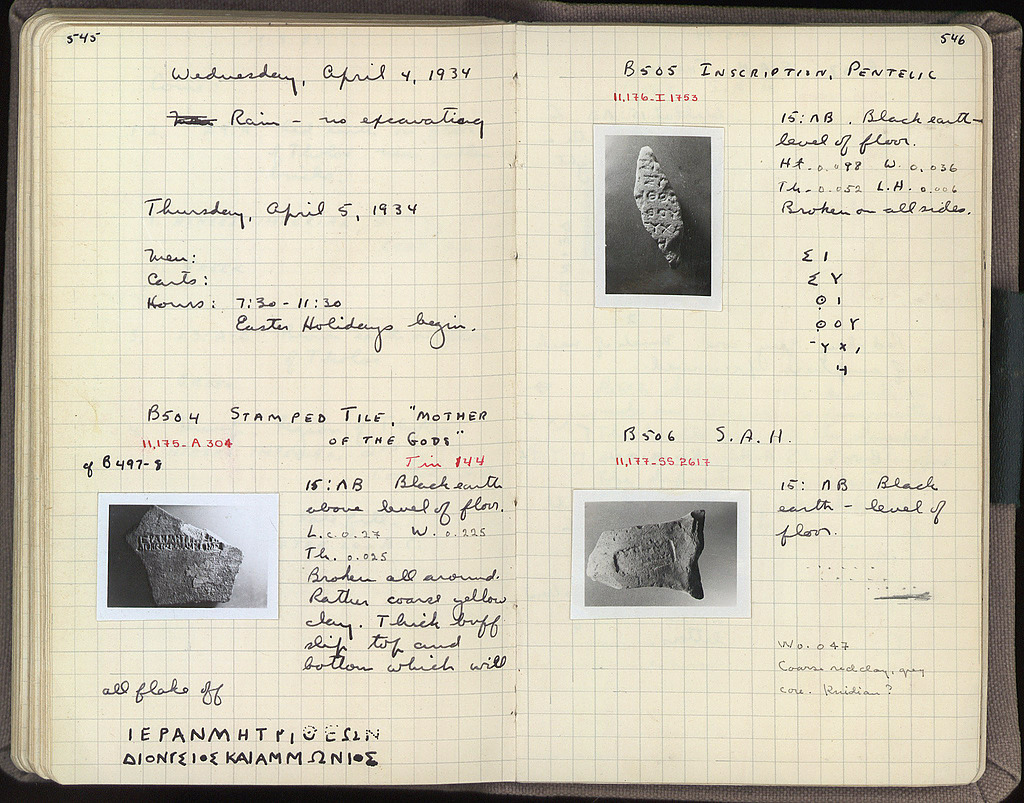 545
Wednesday, April 4, 1934
Rain - no excavating
Thursday, April 5, 1934
Men:
Carts:
Hours: 7:30-11:30
Easter Holidays begin.
B504 STAMPED TILE, "MOTHER
OF THE GODS"
II,175-A 304
cf B497-8
T in 144
15:ΛB Black earth
above level of floor.
L.c.0.27 W. 0.225
Th. 0.025
Broken all around.
Rather coarse yellow
clay. Thick buff
slip top and
bottom which will
all flake off
ΙΕΡΑΝΜΗΤΡΙΘΕΩΝ
ΔΙΟΝΥΣΙΟΣΚΑΙΑΜΜΩΝΙΟΣ
546
B505 INSCRIPTION, PENTELIC
II,176-I 1753
15:ΛB. Black earth-
level of floor.
Ht. 0.098 W. 0.036
Th. 0.052 L.H. 0.006
Broken on all sides.
Σ Ι
Σ Υ
Ο Ι
Ο Ο Υ
Υ Χ
B506 S.A.H.
II,177-SS 2617
15: ΛB Black
earth - level of
floor.
W 0.047
Coarse red clay, grey
core. Knidian?